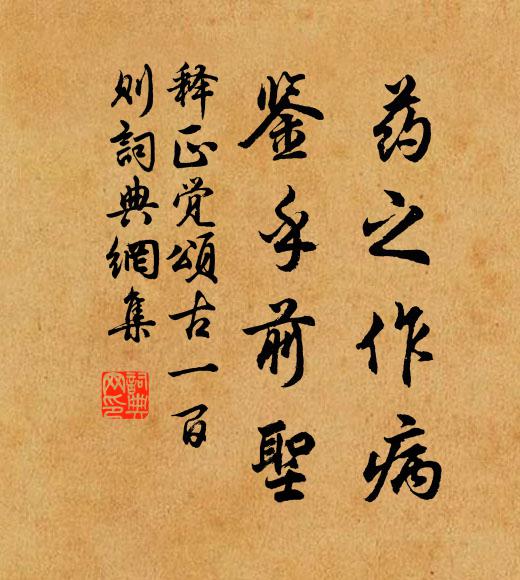 药之作病
鉴乎前聖
释正觉頌古一百
则詞典網集
詞典
网印